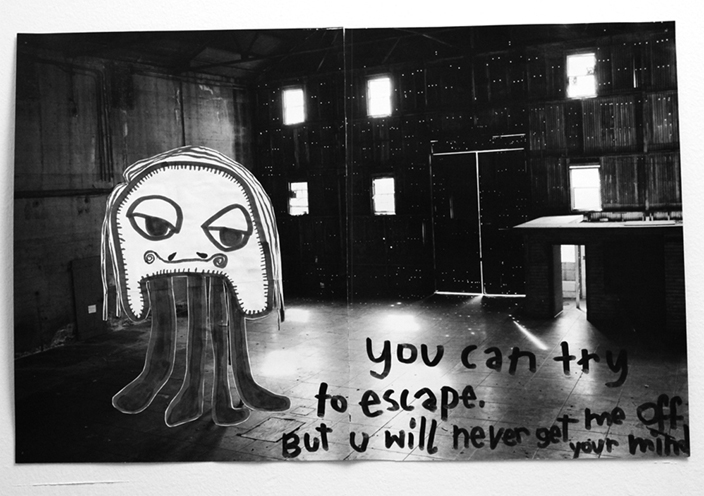 you can try
to escape.
But u will never get me off
your mind